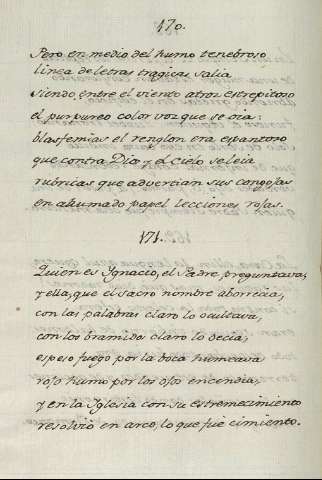 170.
Pero en medio del humo tenebroso
linea de letras tragicas salia
siendo, entre el viento atroz estrepitoso
el purpureo color voz que se oìa:
blasfemias el renglon era espantoso
que contra Dios y el Cielo se leìa
rubricas que advercian sus congojas
en ahumado papel lecciones rojas.
171.
Quien es Ignacio, el Padre, preguntava,
y ella, que el sacro nombre aborrecia,
con las palabras claro lo ocultava,
con los bramidos claro lo decia;
espeso fuego por la boca humeava
rojo humo por los ojos encendia,
y en la Iglesia con su estremecimiento
resolviò en arco, lo que fue cimiento.